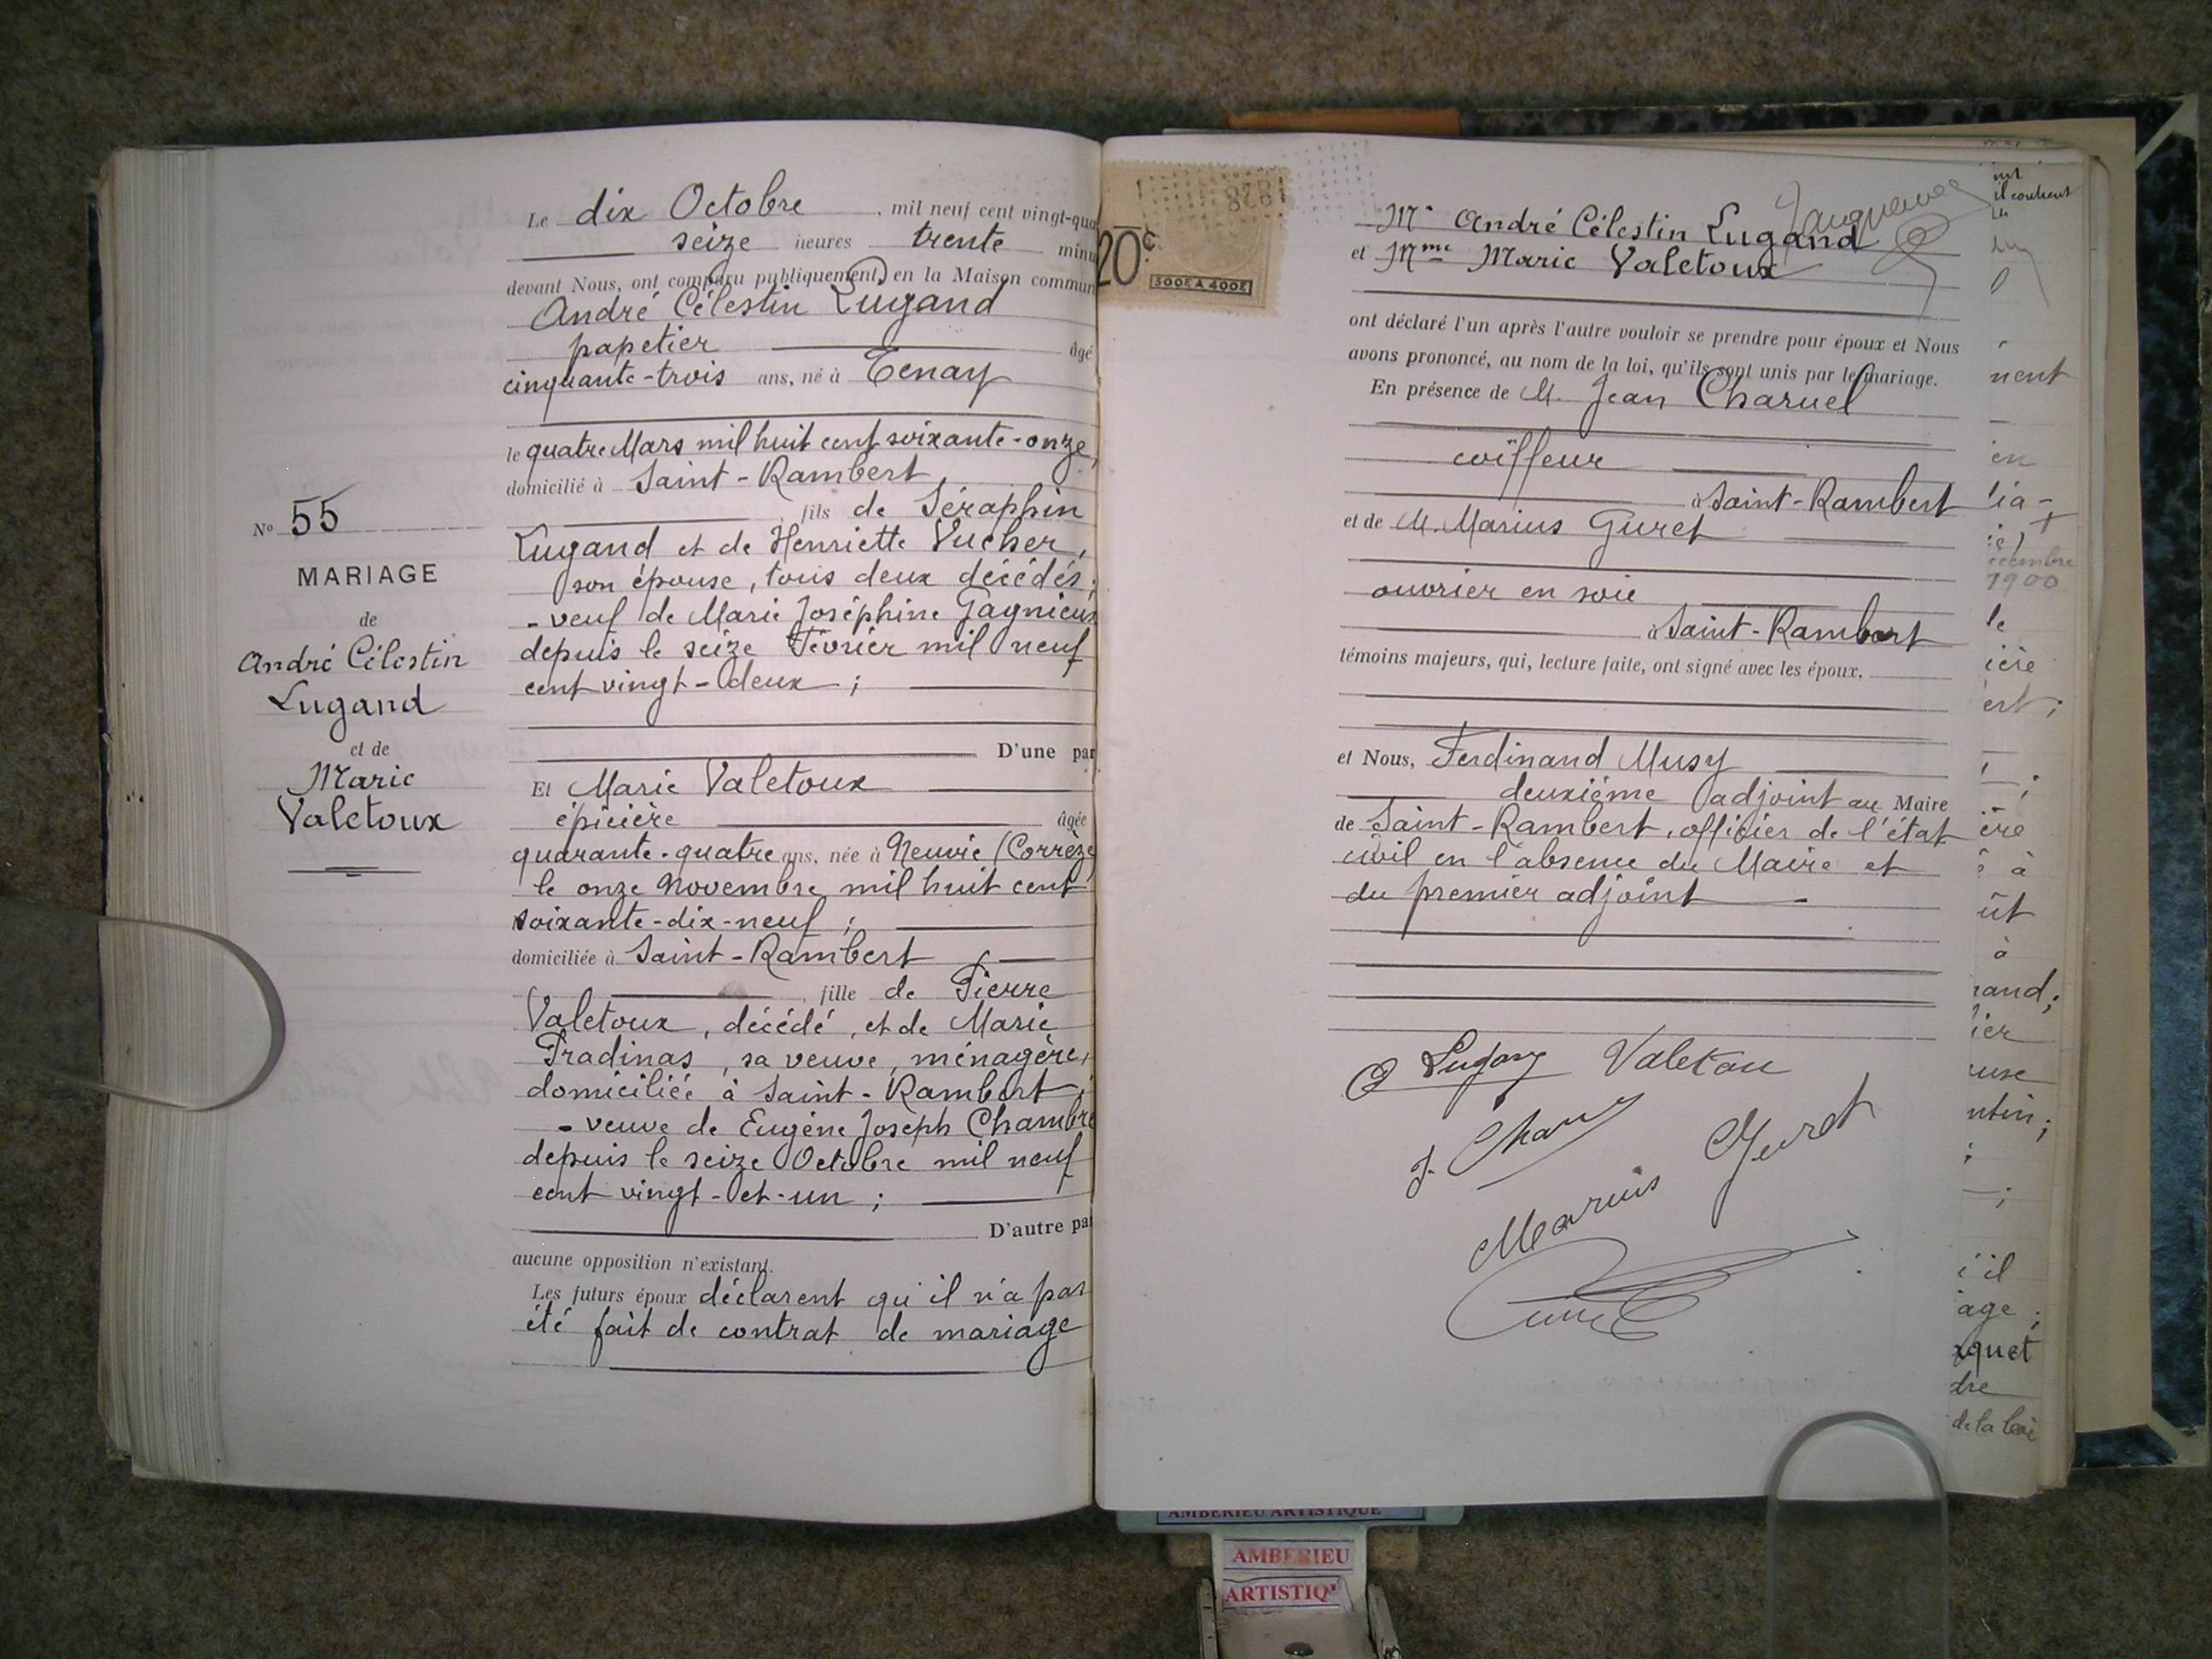 N° 55
MARIAGE
de
André Célestin
Lugand
et de
Marie
Valetoux
Le dix Octobre , mil neuf cent vingt-qua
seize heures trente minu
devant Nous, ont comparu publiquement en la Maison commun
André Célestin Lugand
papetier âgé
cinquante-trois ans, né à Tenay
le quatre Mars mil huit cent soixante-onze,
domicilié à Saint-Rambert
, fils de Séraphin
Lugand et de Henriette Vucher,
son épouse, tous deux décédés;
- veuf de Marie Joséphine Gagnieux
depuis le seize Février mil neuf
cent vingt-deux ;
D'une par
Et Marie Valetoux
épicière âgée
quarante-quatre ans, née à Neuvic (Corrèze)
le onze Novembre mil huit cent
soixante-dix-neuf ;
domiciliée à Saint-Rambert
, fille de Pierre
Valetoux, décédé, et de Marie
Pradinas, sa veuve, ménagère,
domiciliée à Saint-Rambert,
- veuve de Eugène Joseph Chambre
depuis le seize Octobre mil neuf
cent vingt-et-un ;
D'autre par
aucune opposition n'existant.
Les futurs époux déclarent qu'il n'a pas
été fait de contrat de mariage
8781
20c
300F A 400F
Mr André Célestin Lugand
et Mme Marie Valetoux
ont déclaré l'un après l'autre vouloir se prendre pour époux et Nous
avons prononcé, au nom de la loi, qu'ils sont unis par le mariage.
En présence de M. Jean Charuel
coiffeur
à Saint-Rambert
et de M. Marius Guret
ouvrier en soie
à Saint-Rambert
témoins majeurs, qui, lecture faite, ont signé avec les époux,
et Nous, Ferdinand Musy
deuxième adjoint au Maire
de Saint-Rambert, officier de l'état
civil en l'absence du Maire et
du premier adjoint
Valetou
Marius Guret
il contient
nent
en
lia-
1900
le
ière
ert;
ère
à
ût
à
rand;
ier
use
ntin;
'il
age;
quet
dre
de la loi
AMBERIEU ARTISTIQUE
AMBERIEU
ARTISTIQ